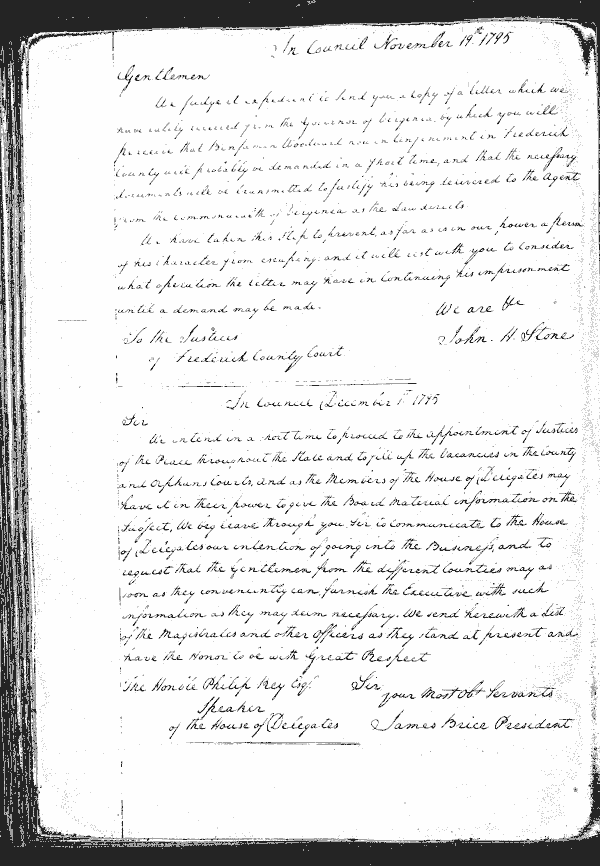 In Council November 19th 1795
Gentlemen
We judge it expedient to send you a copy of a letter which we
have lately received from the Governor of Virginia, by which you will
perceive that Benjamin Woodward now in Confinement in Frederick
County will probably be demanded in a short time, and that the necessary
documents will be transmitted to justify his being delivered to the Agent
from the commonwealth of Virginia as the Law directs
We have taken this step to prevent, as far as is in our power a person
of his Character from escaping, and it will rest with you to Consider
what operation the letter may have in Continuing his imprisonment
until a demand may be made.
We are &c
To the Justices
John. H. Stone
of Frederick County Court
In Council December 1st 1795
Sir
We intend in a short time to proceed to the appointment of Justices
of the Peace throughout the State and to fill up the Vacancies in the County
and Orphans Courts, and as the Members of the House of Delegates may
have it in their power to give the Board Material information on the
Subject, We beg leave through you, Sir to communicate to the House
of Delegates our intention of going into the Business, and to
request that the Gentlemen from the different Counties may as
soon as they conveniently can, furnish the Executive with such
information as they may deem necessary. We send herewith a List
of the Magistrates and other Officers as they stand at present and
have the Honor to be with Great Respect
The Honble Philip Key Esqr.
Sir
your Most Obt Servants
Speaker
of the House of Delegates
James Brice President